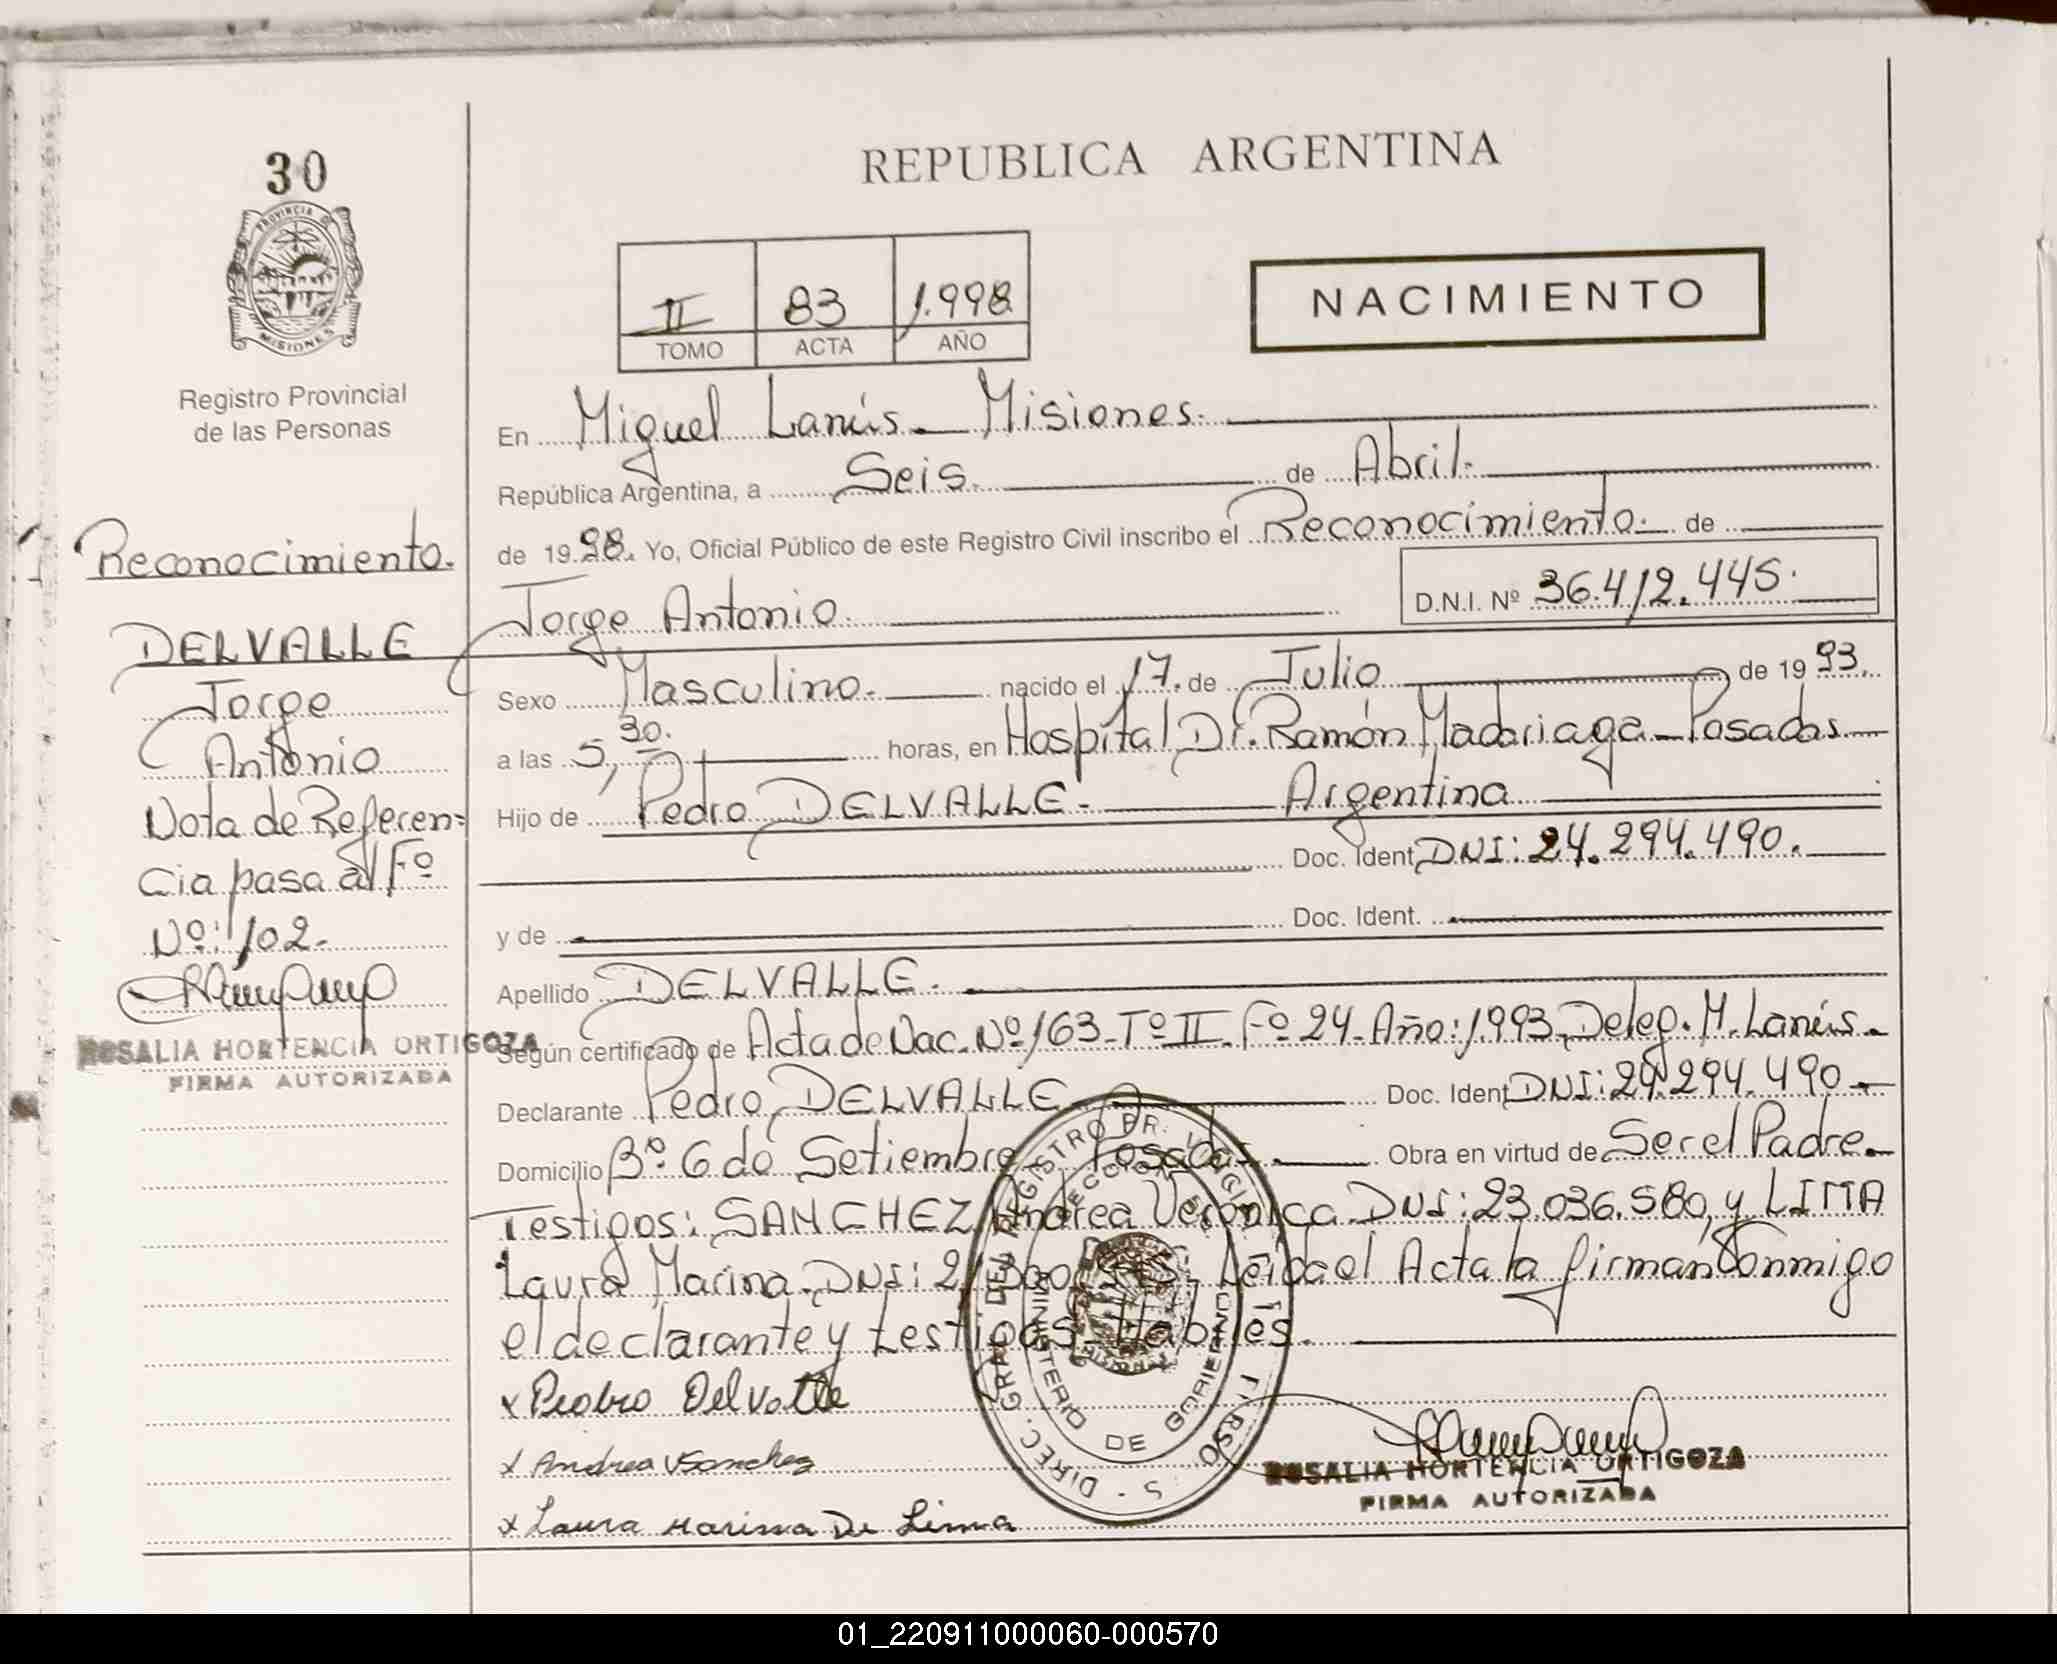 30
PROVINCIA D
MISIONES
Registro Provincial
de las Personas
Reconocimiento.
DELVALLE
Jorge
Antonio
Nota de Referen=
cia pasa al Fº
Nº: 102.
ROSALIA HORTENCIA ORTIGOZA
FIRMA AUTORIZADA
REPUBLICA ARGENTINA
II 83 1.998
TOMO ACTA AÑO
NACIMIENTO
En Miguel Lanús - Misiones.
República Argentina, a Seis. de Abril.
de 1998. Yo, Oficial Público de este Registro Civil inscribo el Reconocimiento. de
Jorge Antonio D.N.I. Nº 36.412.445.
Sexo Masculino. nacido el 17. de Julio de 1993.
a las 5,30. horas, en Hospital Dr. Ramón Madariaga - Posadas.
Hijo de Pedro DELVALLE. Argentina
Doc. Ident. DNI: 24.294.490.
y de Doc. Ident.
Apellido DELVALLE.
Según certificado de Acta de Nac. Nº 163 - Tº II - Fº 24 - Año: 1.993 - Deleg. M. Lanús.
Declarante Pedro DELVALLE Doc. Ident. DNI: 24.294.490.
Domicilio Bº. 6 de Setiembre - Posadas. Obra en virtud de Ser el Padre.
Testigos: SANCHEZ Andrea Verónica DNI: 23.036.580, y LIMA
Laura Marina. DNI: Leída el Acta la firman Conmigo
el declarante y testigos Hábiles.
x Pedro Delvalle
x Andrea V Sanchez
x Laura Marina De Lima
DIREC. GRAL DEL REGISTRO PR. VINCIAL
MINISTERIO DE GOBIERNO
ROSALIA HORTENCIA ORTIGOZA
FIRMA AUTORIZADA
01_220911000060-000570